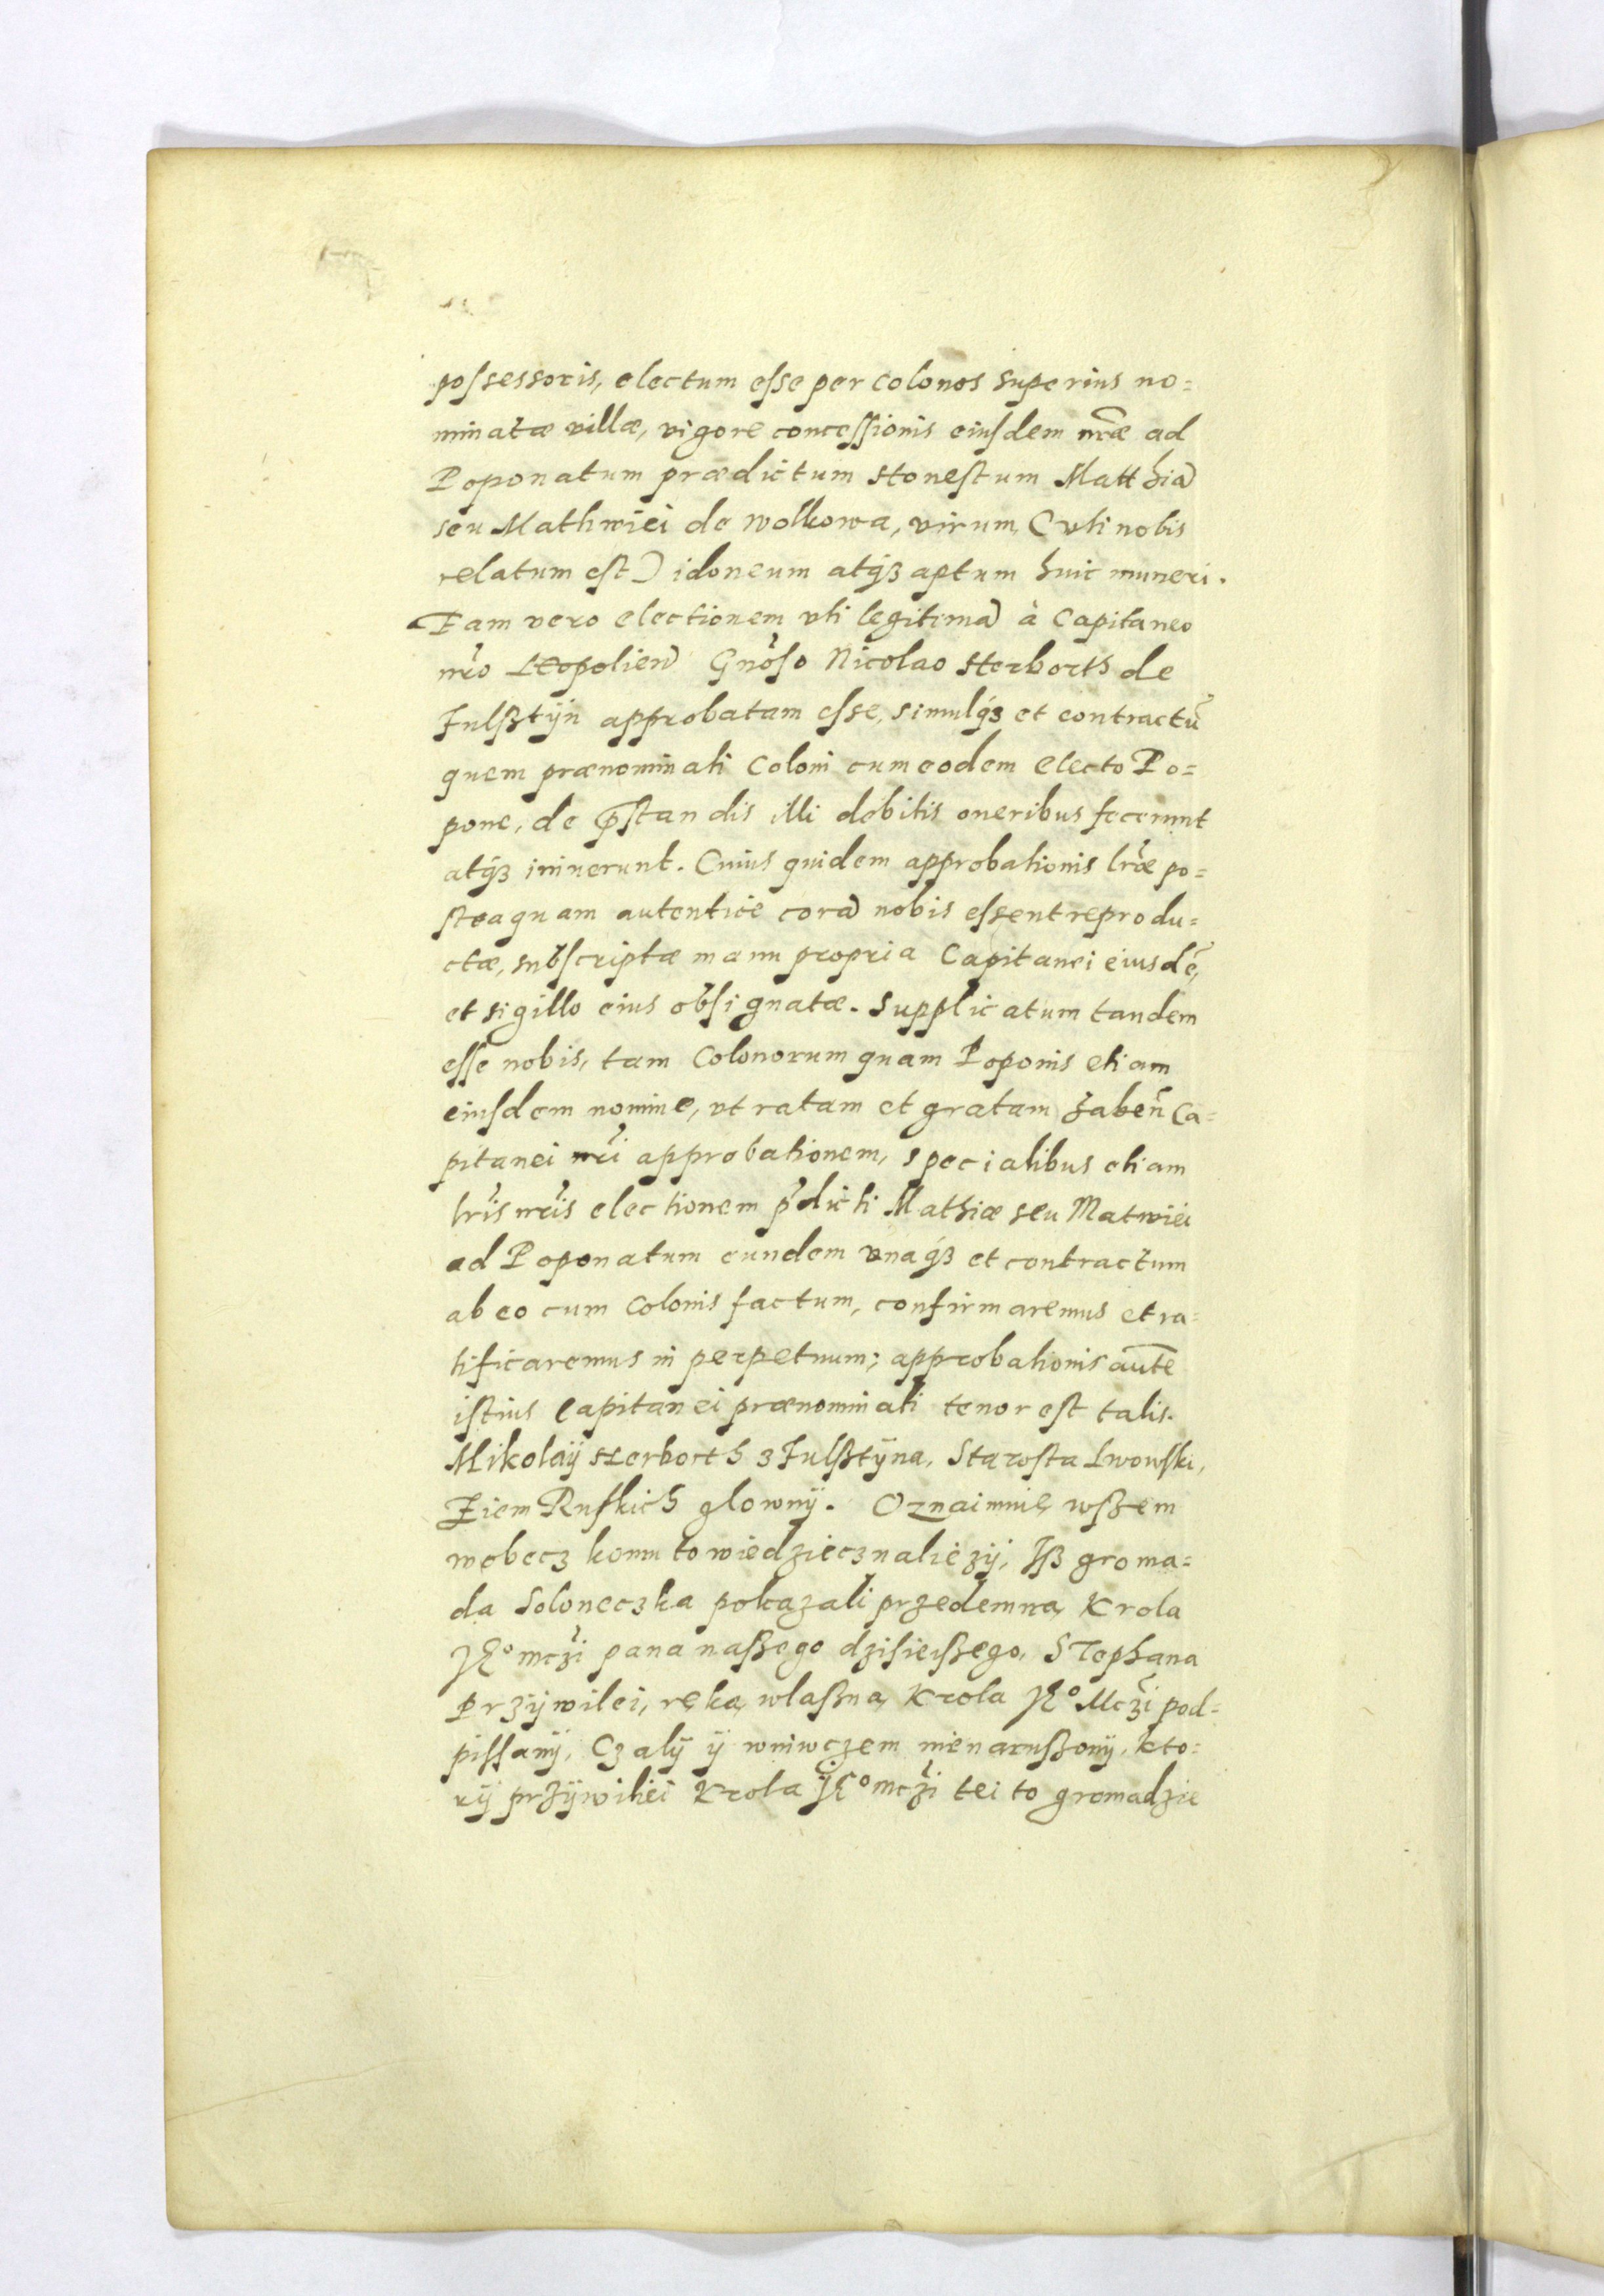 possessoris, electum esse per Colonos superius no=
minatæ villæ, vigore concessionis eiusdem nr̃æ ad
Poponatum prædictum Honestum Matthiã
seu Mathwiei de Wolkowa, virum, (vti nobis
relatum est) idoneum atq́ꝫ aptum huic muneri.
Eam vero electionem vti legitimã à Capitaneo
nr̃o Leopolien̄ Gnõso Nicolao Herborth de
Fulßtÿn approbatam esse, simulq́ꝫ et contractũ
quem prænominati Coloni cum eodem electo Po=
pone, de p̃standis illi debitis oneribus fecerunt
atq́ꝫ inierunt. Cuius quidem approbationis lr̃æ po=
steaquam autentice corã nobis essent reprodu=
ctæ, subscriptæ manu propria Capitanei eiusdẽ,
et sigillo eius obsignatæ. Supplicatum tandem
esse nobis, tam Colonorum quam Poponis etiam
eiusdem nomine, vt ratam et gratam haben̄ Ca=
pitanei nr̃i approbationem, specialibus etiam
lr̃is nr̃is electionem p̃dicti Mathiæ seu Matwiei
ad Poponatum eundem vnaq́ꝫ et contractum
ab eo cum Colonis factum, confirmaremus et ra=
tificaremus in perpetuum; approbationis aut̃e
istius Capitanei prænominati tenor est talis.
Mikolaÿ Herborth z Fulßtÿna, Starosta Lwowski,
Ziem Ruskich glownÿ. Oznaimuię wßem
wobecz komu to wiedziecz naliezÿ, Iß groma=
da Soloneczka pokazali przedemną Krola
JE° mc̃zi pana naßego dzisieißego, Stephana
Przÿwilei, ręką wlaßną Krola JE° Mc̃zi pod=
pissanÿ, Czalÿ ÿ wniwczem nienarußonÿ, kto=
rÿ przÿwiliei Krola JE° mc̃zi tei to gromadzie